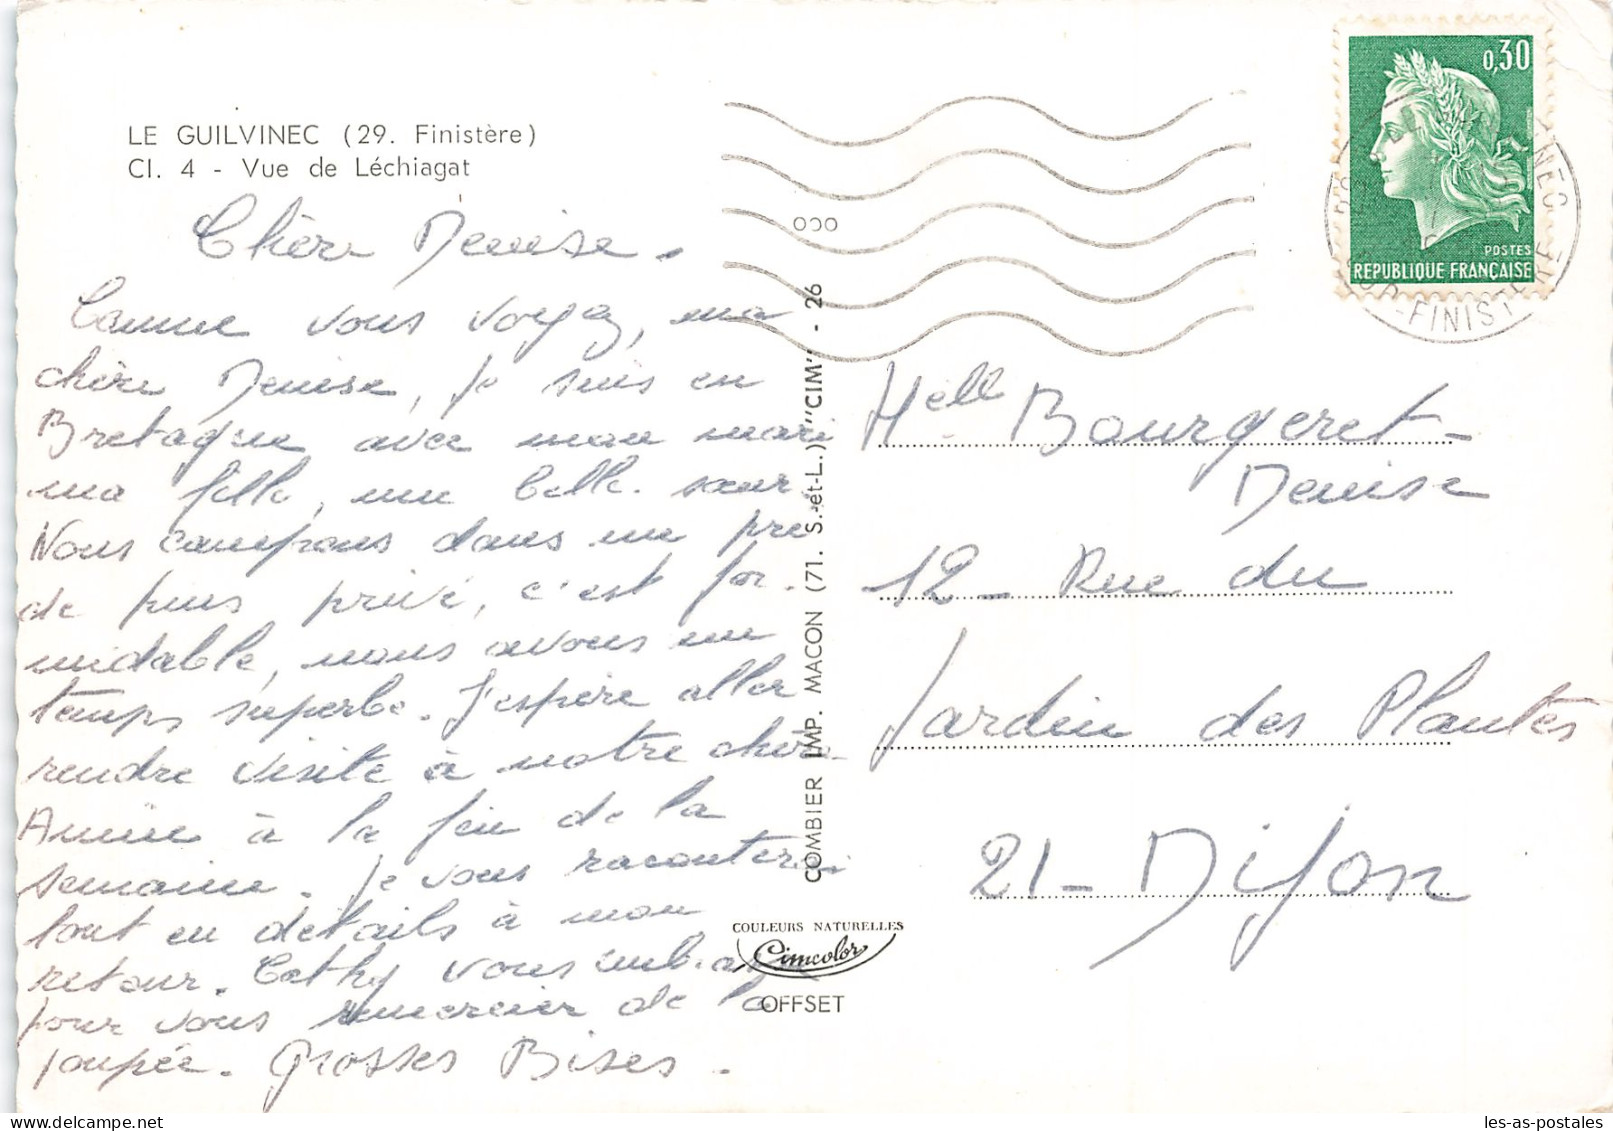 LE GUILVINEC (29. Finistère)
Cl. 4 - Vue de Léchiagat
Chère Denise.
Comme vous voyez, ma
chère Denise, je suis en
Bretagne avec mon mari
ma fille, une belle-sœur
Nous campons dans un pré
de pins privé, c'est for-
midable, nous avons un
temps superbe. J'espère aller
rendre visite à notre chère
Annie à la fin de la
semaine. Je vous raconterai
tout en détails à mon
retour. Cathy vous embrasse
pour vous remercier de la
poupée. Grosses Bises.
COMBIER IMP. MACON (71. S.-et-L.) "CIM" - 26
COULEURS NATURELLES
Cimcolor
OFFSET
000
0,30
POSTES
REPUBLIQUE FRANÇAISE
-FINISTERE
Melle Bourgeret-
Denise
12 - Rue du
Jardin des Plantes
21 - Dijon
les-as-postales